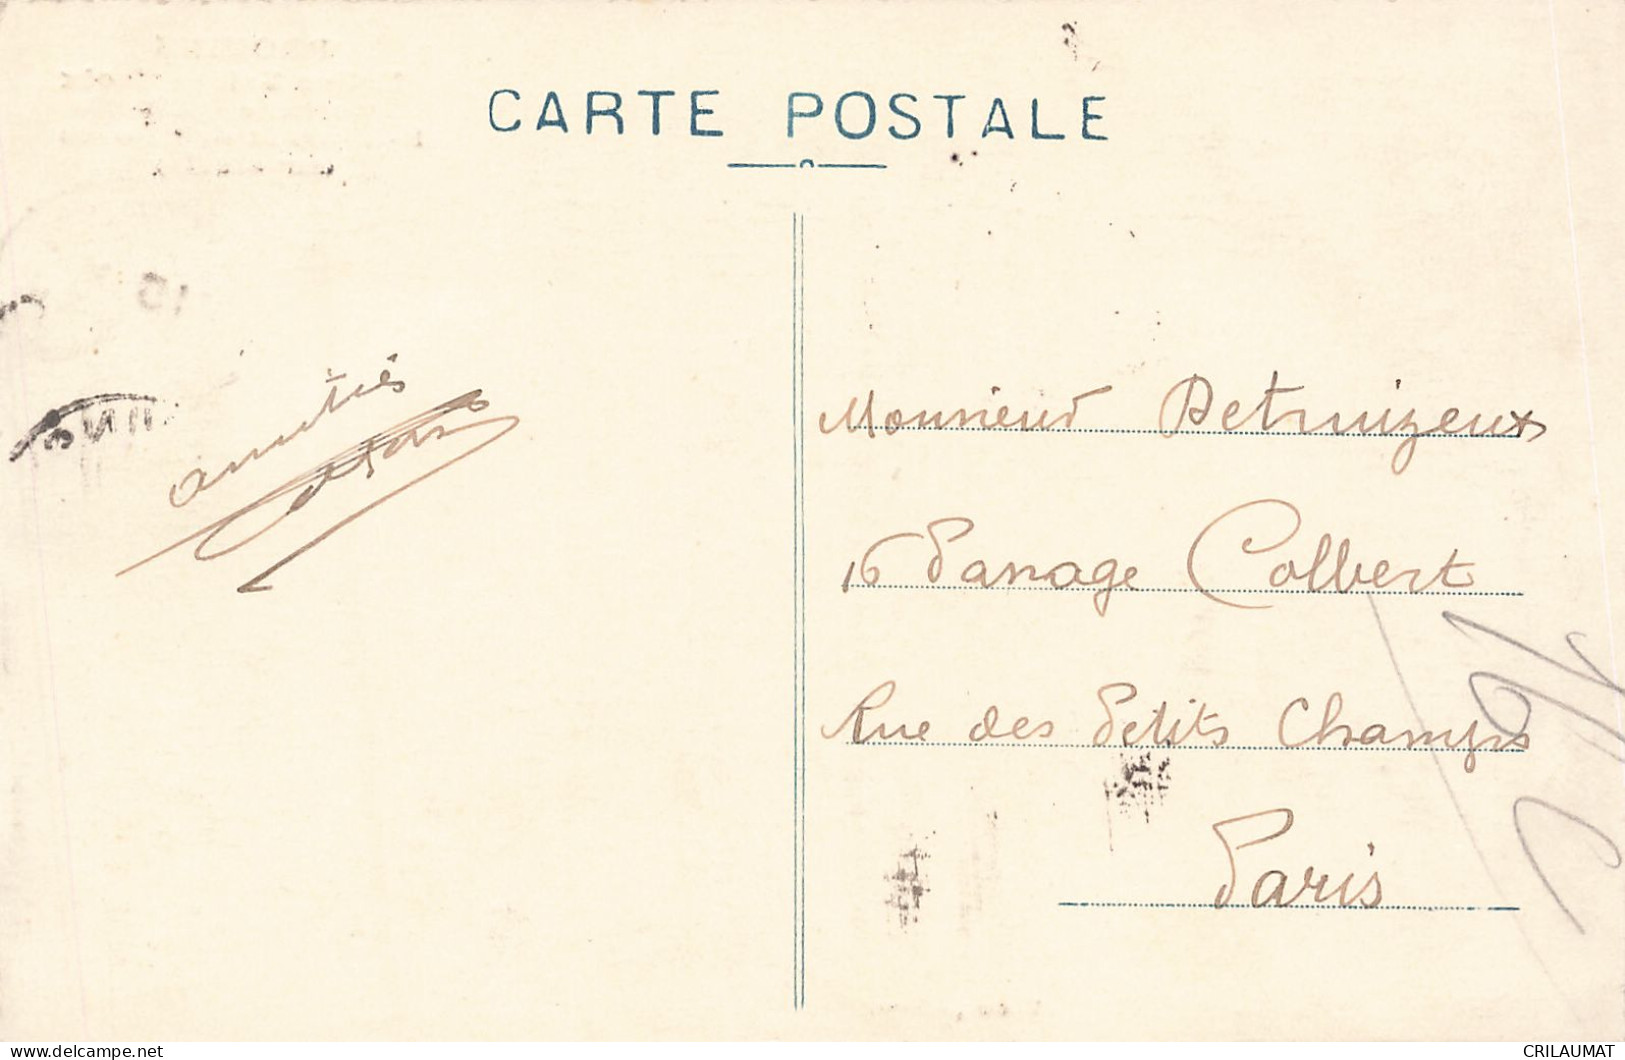 CARTE POSTALE
amitiés
Monsieur Detruizeux
16 Passage Colbert
Rue des Petits Champs
Paris
16
CRILAUMAT